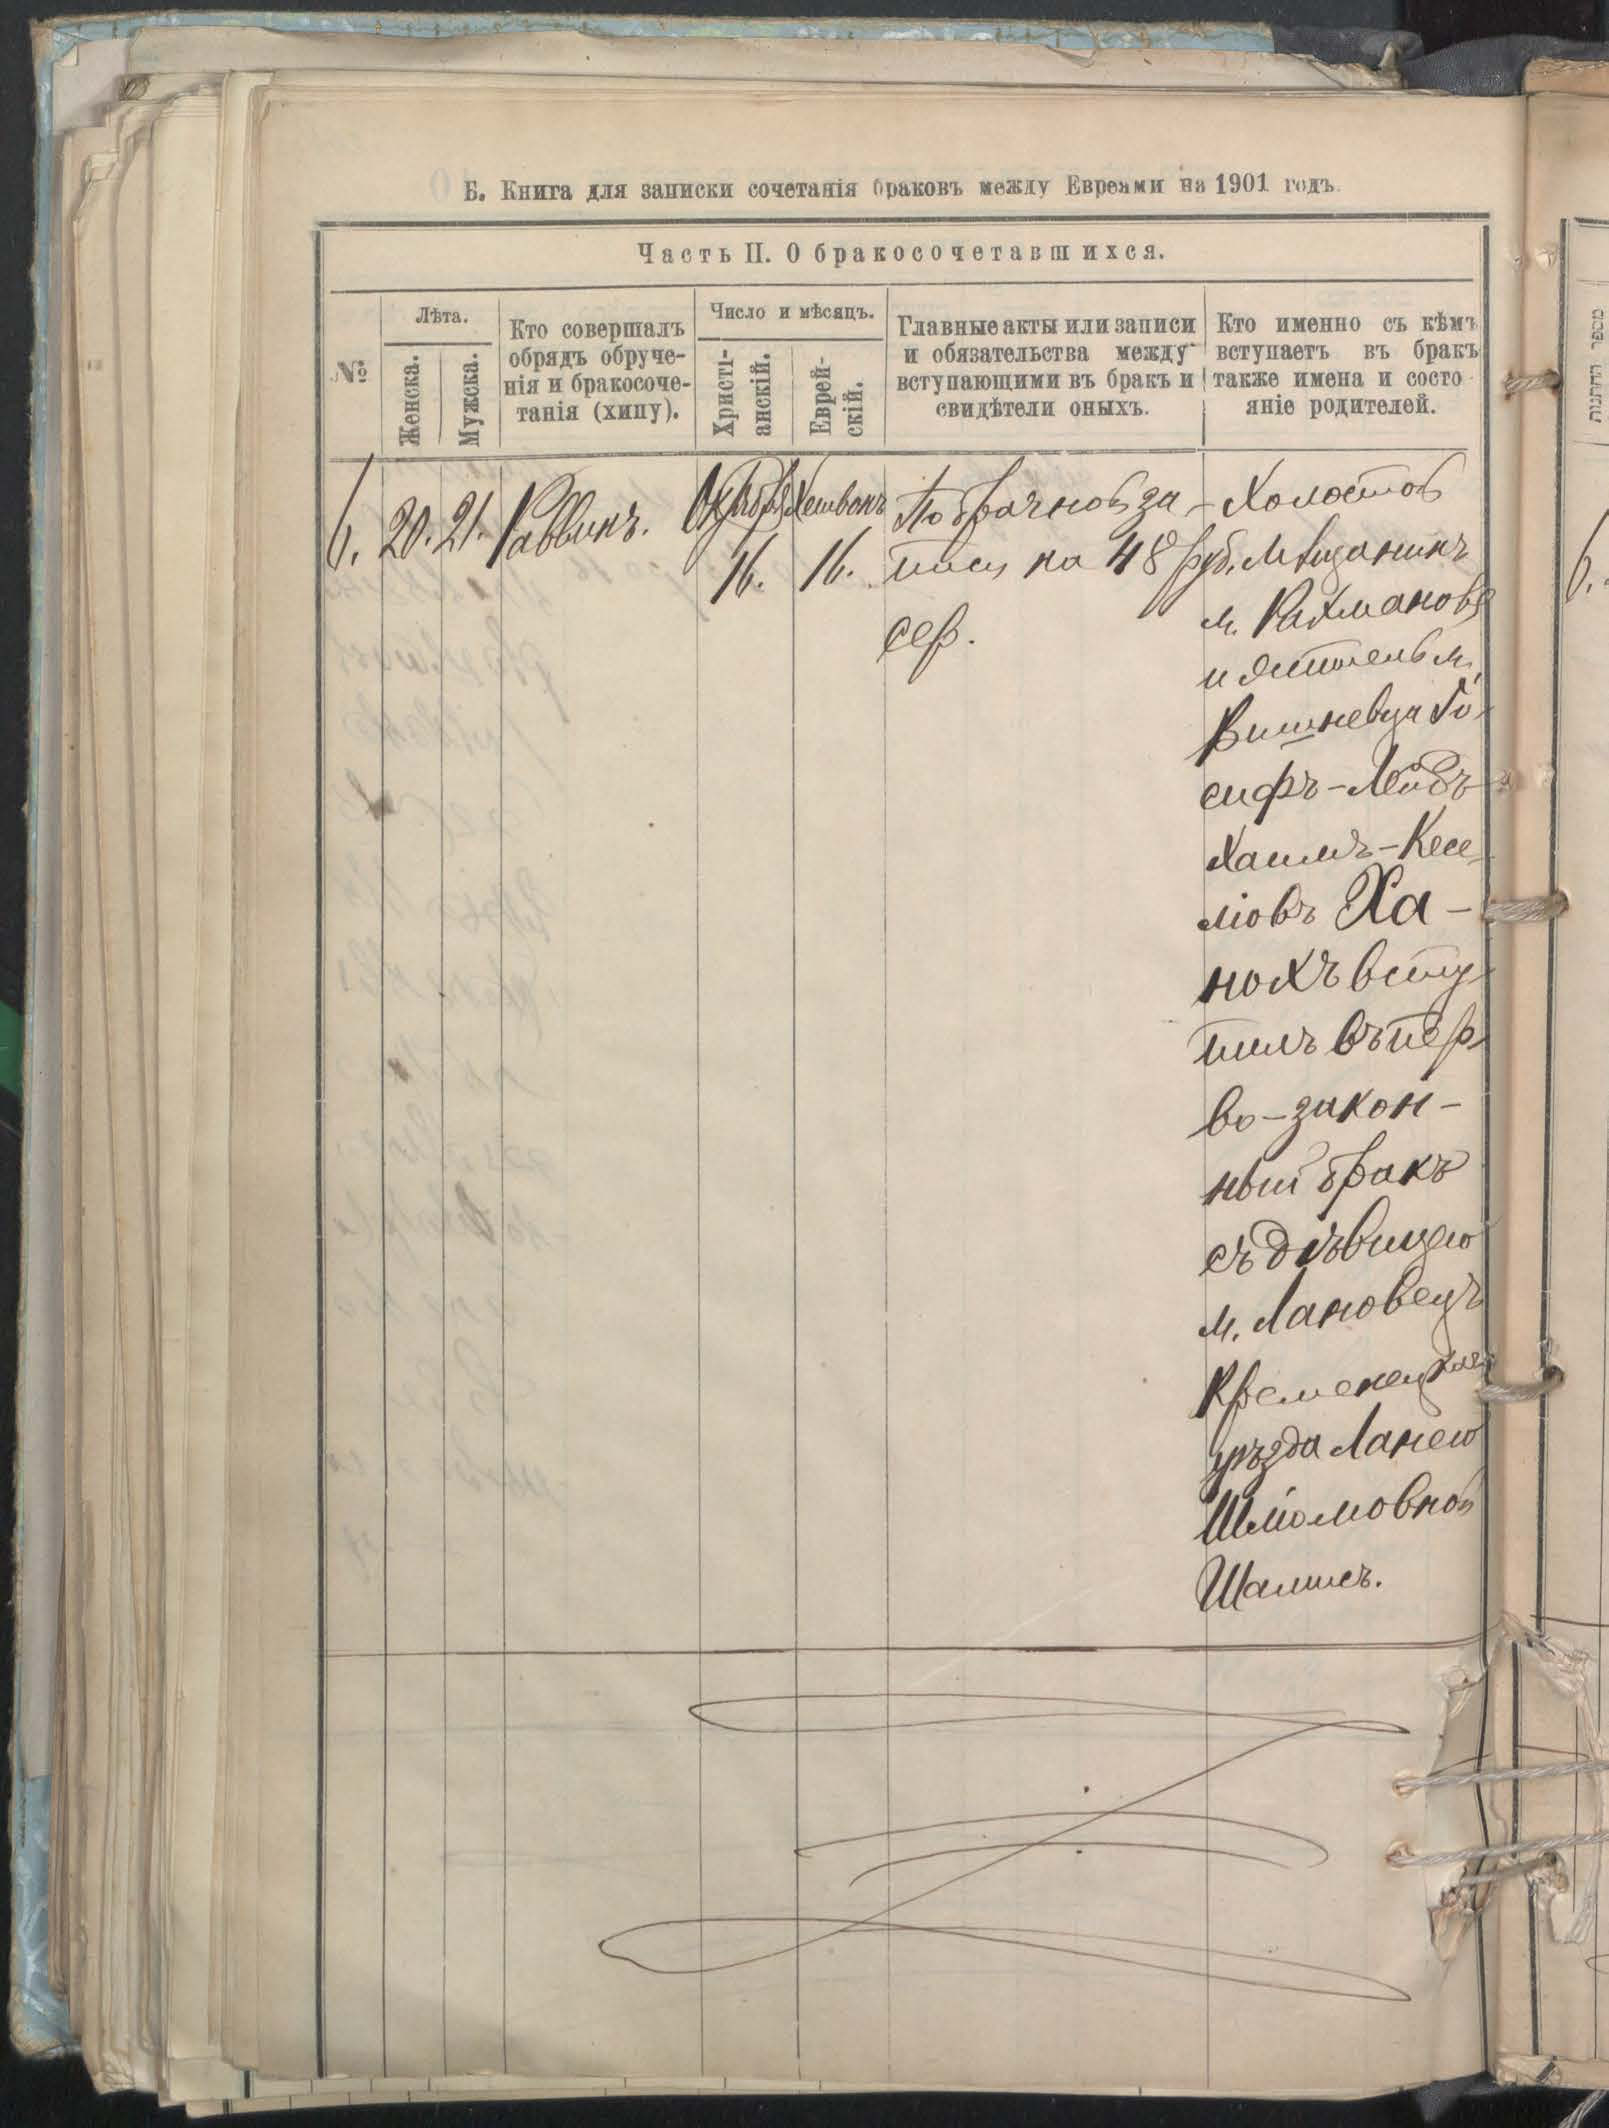 Б. Книга для записки сочетанія браковъ между Евреями на 1901 годъ.
Часть II. О бракосочетавшихся.
№
Лѣта.
Женска.
Мужска.
Кто совершалъ
обрядъ обруче-
нія и бракосоче-
танія (хипу).
Число и мѣсяцъ.
Христі-
анскій.
Еврей-
скій.
Главные акты или записи
и обязательства между
вступающими въ бракъ и
свидѣтели оныхъ.
Кто именно съ кѣмъ
вступаетъ въ бракъ
также имена и состо-
яніе родителей.
6. 20. 21. Раввинъ.
Октября
16.
Хешвонъ
16.
По брачной за-
писи на 48 руб.
сер.
Холостой
мѣщанинъ
м. Рахманова
и житель м.
Вишневца Іо-
сифъ-Лейбъ
Хаимъ-Кесе-
ліовъ Ха-
нохъ всту-
пилъ въ пер-
во-закон-
ный бракъ
съ дѣвицею
м. Лановецъ
Кременецкаго
уѣзда Ланею
Шліомовной
Шалисъ.
6.
מספר החתנות